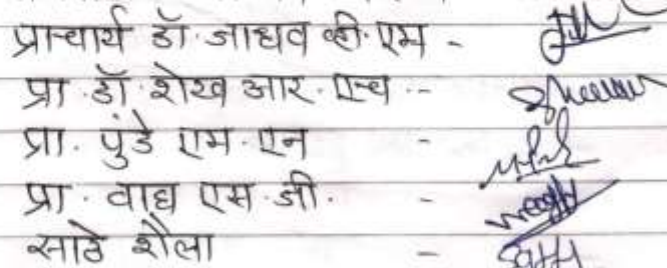 प्राचार्य डॉ. जाधव व्ही. एम -
प्रा. डॉ. शेख आर. एच --
प्रा. पुंडे एम. एन -
प्रा. वाघ एस. जी. -
साठे शैला -